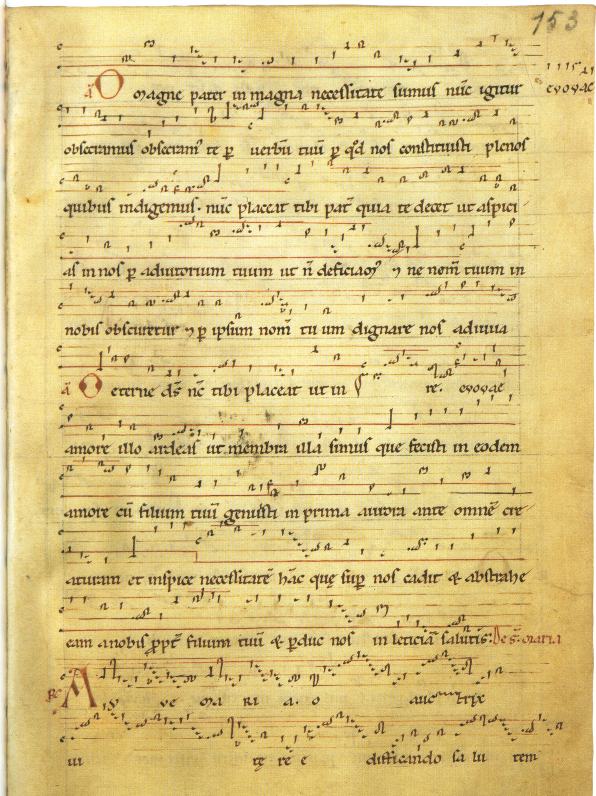 153
a O magne pater in magna necessitate sumus nūc igitur evovae
obsecramus obsecram' te ꝑ uerbū tuū ꝑ qd nos constituisti plenos
quibus indigemus. nūc placeat tibi pat quia te decet ut aspici
as in nos ꝑ adiutorium tuum ut n̄ deficiam' ⁊ ne nom̄ tuum in
nobis obscuretur ⁊ ꝑ ipsum nom̄ tu um dignare nos adiuua
re. evovae
a O eterne ds̄ nc̄ tibi placeat ut in
amore illo ardeas ut membra illa simus que fecisti in eodem
amore cū filium tuū genuisti in prima aurora ante omnē cre
aturam et inspice necessitatē hāc quę suꝑ nos cadit & abstrahe
eam a nobis ꝓpt filium tuū & ꝑduc nos in leticiā salutis: De s. maria
R A ve ma ri a. o auctrix
ui tę re e dificando sa lu tem